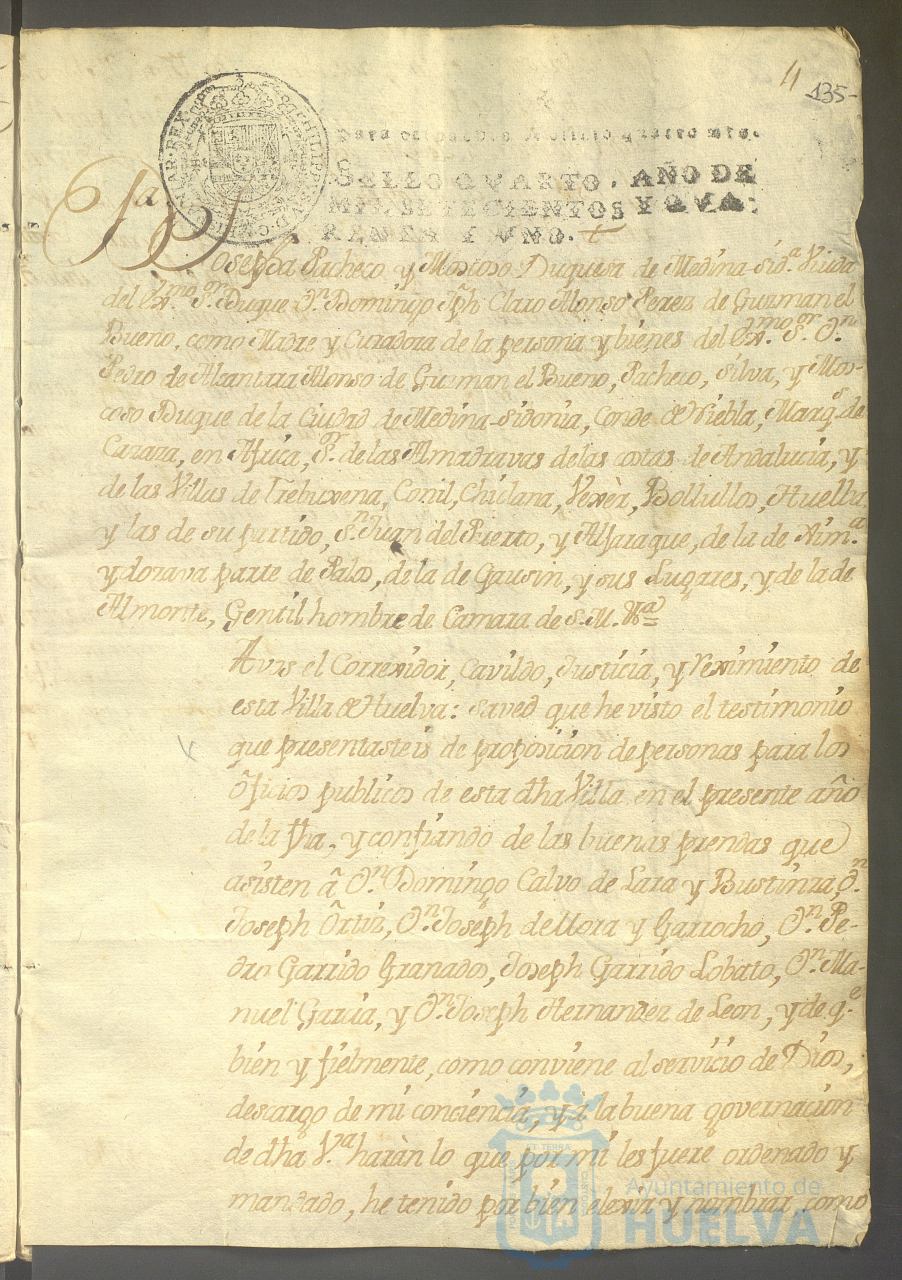 11
135-
PHILIPPUS V D G
HISPANIAR REX
para despachos de oficio quatro mrs.
SELLO QVARTO, AÑO DE
MIL SETECIENTOS Y QVA-
RENTA Y VNO. +
Josepha Pacheco y Moscoso Duquesa de Medina-Sid.ª Viuda
del Ex.mo S.r Duque D.n Domingo Jph Claro Alonso Perez de Guzman el
Bueno, como Madre y Curadora de la persona y bienes del Ex.mo S.or D.n
Pedro de Alcantara Alonso de Guzman el Bueno, Pacheco, Silva, y Mos-
coso Duque de la Ciudad de Medina-Sidonia, Conde de Niebla, Marq.s de
Cazaza, en Africa, S.r de las Almadravas de las costas de Andalucia, y
de las Villas de Trebuxena, Conil, Chiclana, Vexèr, Bollullos, Huelba
y las de su partido, S.n Juan del Puerto, y Aljaraque, de la de Xim.ª
y dozava parte de Palos, de la de Gausin, y sus Lugares, y de la de
Almonte, Gentil hombre de Camara de S. M. &ª
A vos el Correxidor, Cavildo, Justicia, y Reximiento de
esta Villa de Huelva: saved que he visto el testimonio
que presentasteis de proposicion de personas para los
oficios publicos de esta dha Villa en el presente año
de la fha, y confiando de las buenas prendas que
asisten â D.n Domingo Calvo de Lara y Bustinza, D.n
Joseph Ôrtiz, D.n Joseph de Mora y Garrocho, D.n Pe-
dro Garrido Granados, Joseph Garrido Lobato, D.n Ma-
nuel Garcia, y D.n Joseph Hernandez de Leon, y de q.e
bien y fielmente, como conviene al servicio de Dios,
descargo de mi conciencia, y a la buena governacion
de dha V.ª haràn lo que por mi les fuere ordenado y
mandado, he tenido por bien elexir y nombrar, como
Ayuntamiento de
HUELVA